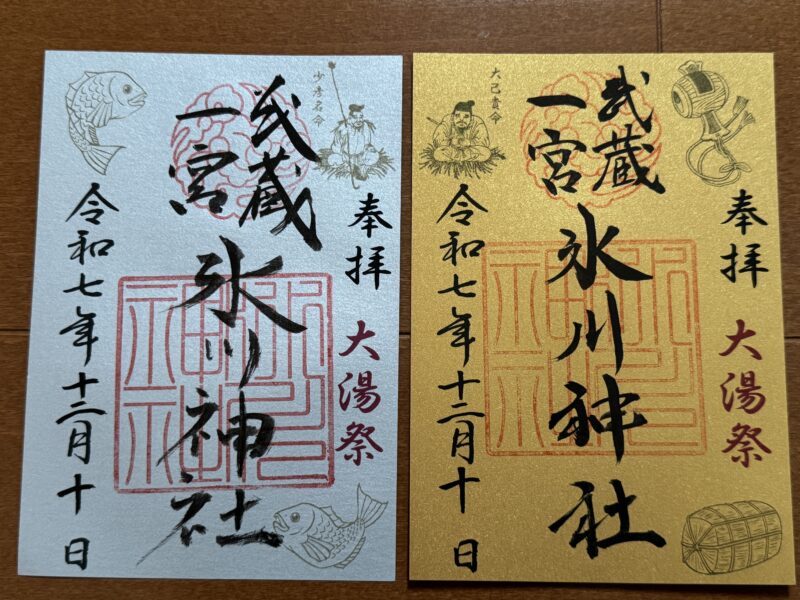 少彦名命
奉拝 大湯祭
武蔵
一宮
氷川神社
令和七年十二月十日
氷川神社
大己貴命
奉拝 大湯祭
武蔵
一宮
氷川神社
令和七年十二月十日
氷川神社